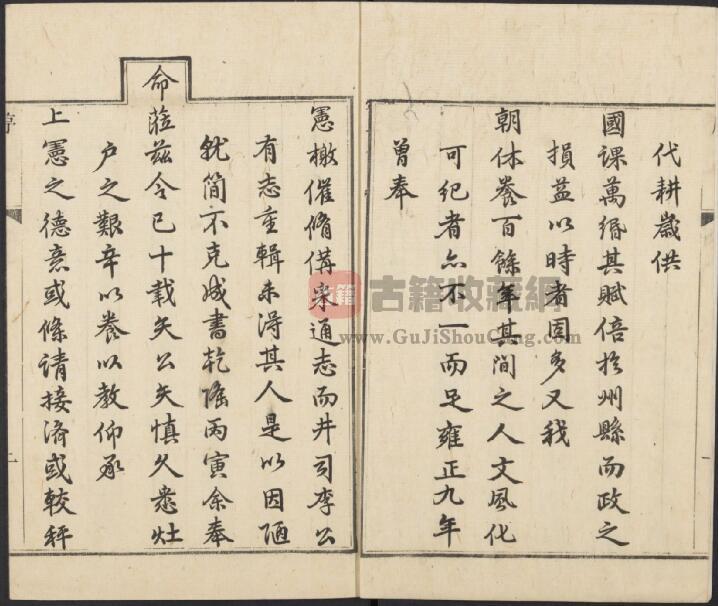 代耕歲供
國課萬緡其賦倍扵州縣而政之
損益以時者固多又我
朝休養百餘年其间之人文風化
可纪者亦不一而足雍正九年
曾奉
憲檄催脩備采通志而井司李公
有志重輯未淂其人是以因陋
就简不克成書乾隆丙寅余奉
命蒞兹今已十載矣公矢慎久悉灶
户之艱辛以養以教仰承
上憲之德意或條請接濟或較秤
二
古籍
古籍收藏網
www.GuJiShouCang.com